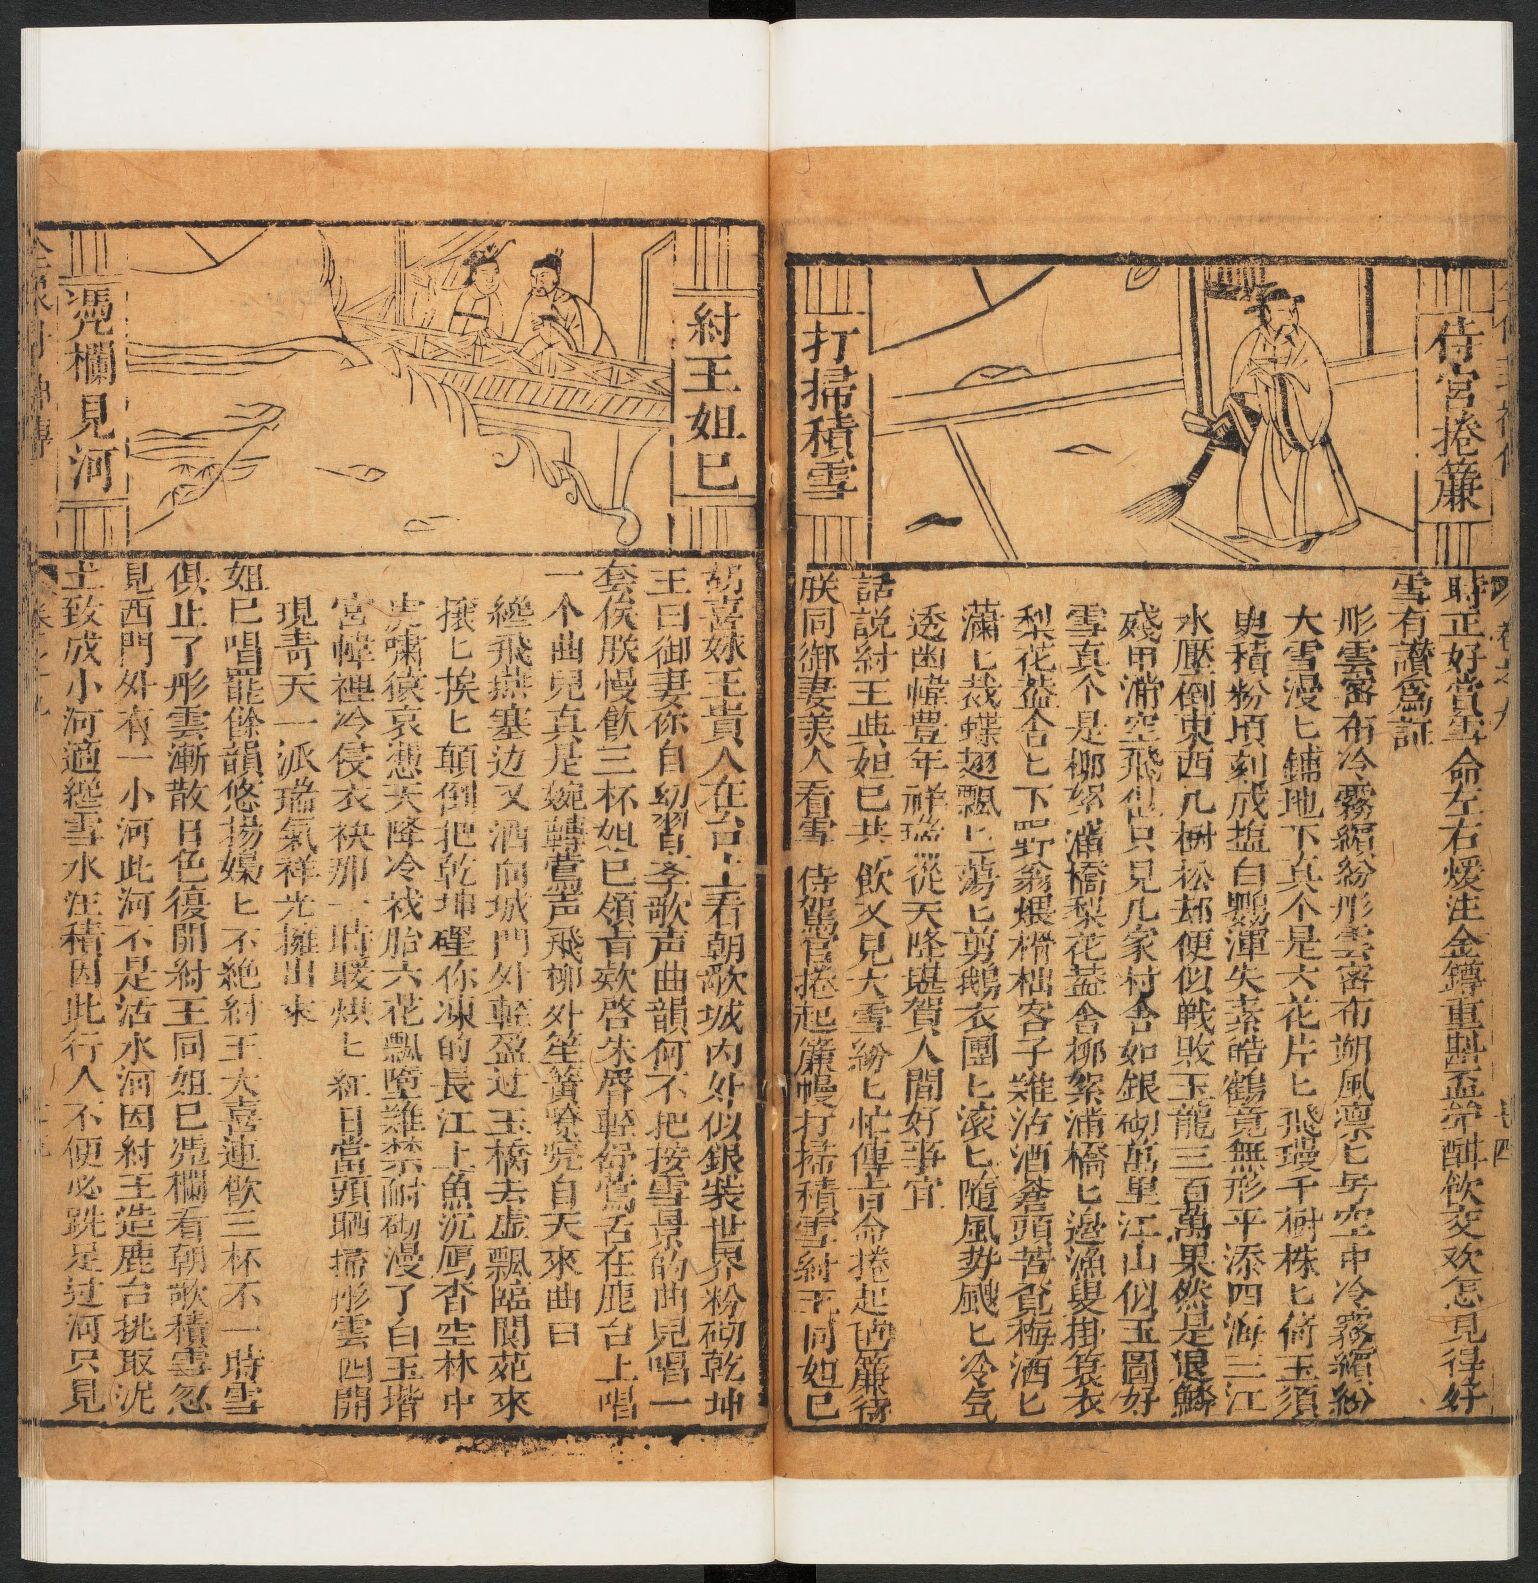 侍宮捲簾
打掃積雪
時正好賞雪命左右煖注金鐏重斟盃斝酣飲交欢怎見得好
雪有讃爲証
彤雲密布冷霧繽紛彤雲密布朔風凛匕号空中冷霧繽紛
大雪漫匕鋪地下真个是六花片匕飛瓊千樹株匕倚玉須
臾積粉頃刻成塩白鸚渾失素皓鶴竟無形平添四海三江
水壓倒東西几樹松却便似戦敗玉龍三百萬果然是退鱗
殘甲滿空飛但只見几家村舍如銀砌萬里江山似玉圖好
雪真个是柳絮滿橋梨花盖舍柳絮滿橋匕邊漁叟掛簑衣
梨花盖舍匕下野翁煨榾柮客子難沽酒蒼頭苦覔梅洒匕
瀟匕裁蝶翅飄匕蕩匕剪鵝衣團匕滚匕隨風势颼匕冷気
透幽幃豊年祥瑞從天降堪賀人間好事宜
話説紂王與妲已共飲又見大雪紛匕忙傳旨命捲起氊簾待
朕同御妻美人看雪侍駕官捲起簾幔打掃積雪紂王同妲已
紂王妲已
凴欄見河
胡喜妹王貴人在台上看朝歌城内外似銀裝世界粉砌乾坤
王曰御妻你自幼習孝歌声曲韻何不把按雪景的曲兒唱一
套俟朕慢飲三杯妲已領旨欵啓朱唇輕舒鶯舌在鹿台上唱
一个曲兒真是婉轉鶯声飛柳外笙簧嘹喨自天來曲曰
纔飛燕塞边又洒向城門外輕盈过玉橋去虚飄臨閬苑來
攘匕挨匕顛倒把乾坤礙你凍的長江上魚沉鴈杳空林中
虎嘯猿哀憑天降冷祅胎六花飄墮難禁耐砌漫了白玉堦
宮幃裡冷侵衣袂那一時暖烘匕紅日當頭晒掃彤雲四開
現青天一派瑞氣祥光擁出來
妲已唱罷餘韻悠揚嬝匕不絶紂王大喜連飲三杯不一時雪
俱止了彤雲漸散日色復開紂王同妲已凴欄看朝歌積雪忽
見西門外有一小河此河不是活水河因紂王造鹿台挑取泥
土致成小河適纔雪水注積因此行人不便必跣足过河只見